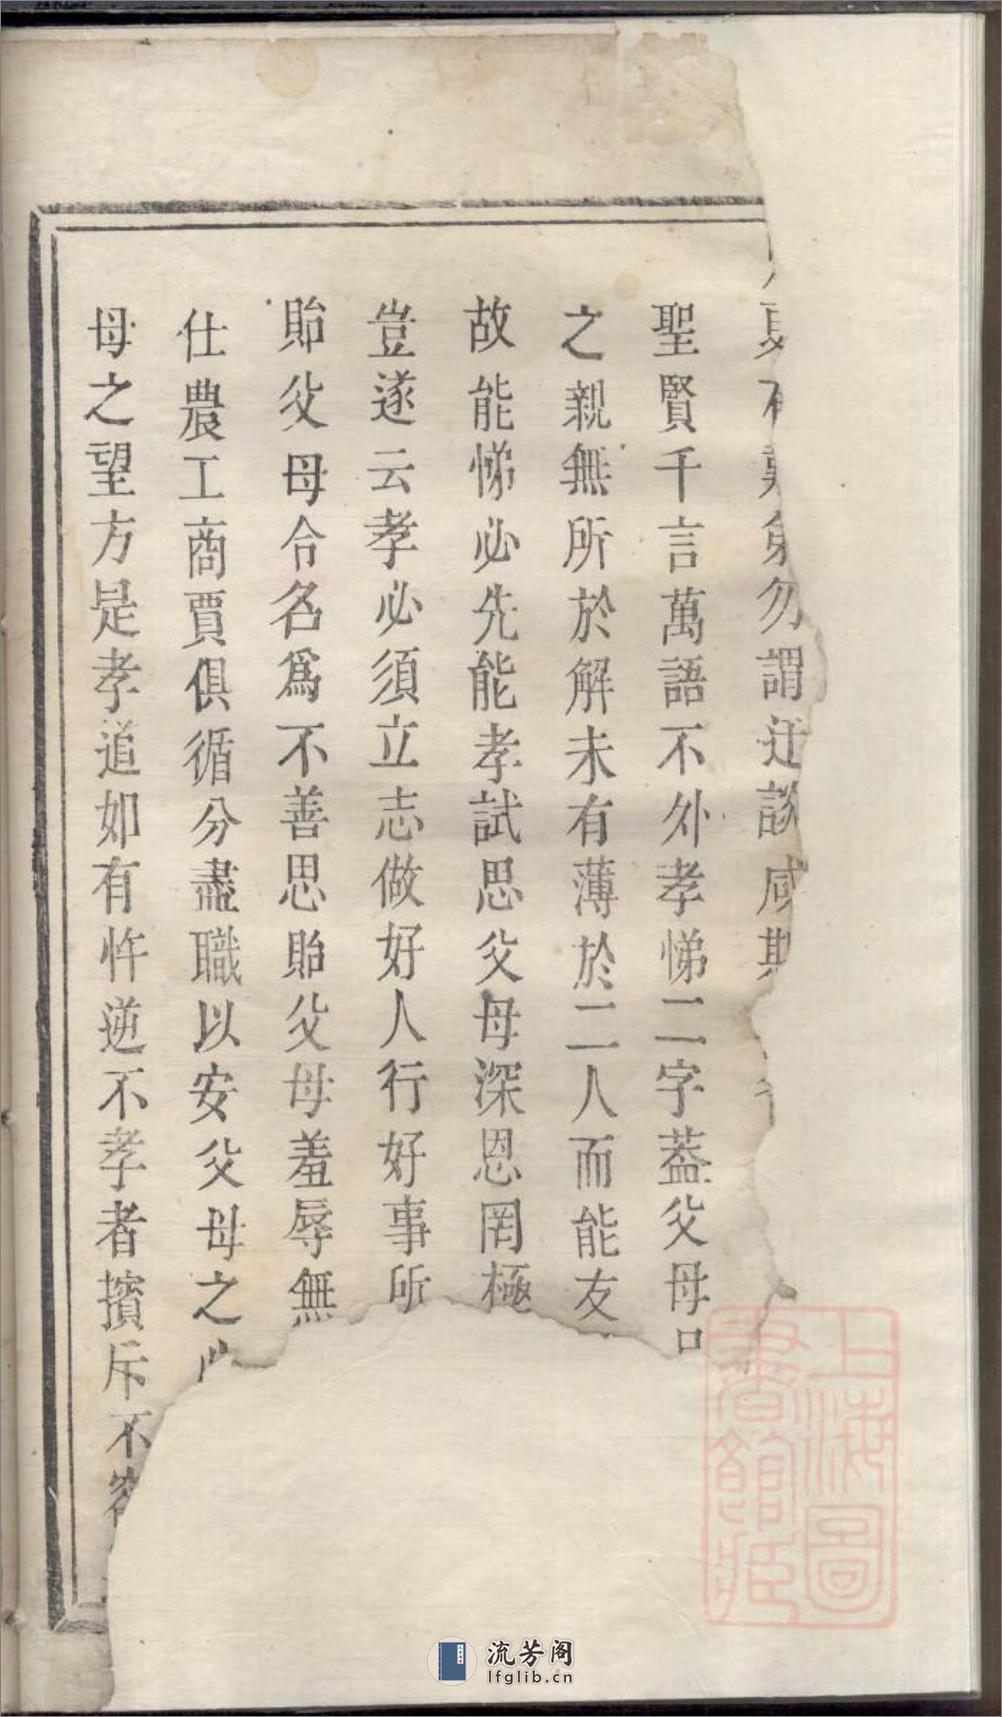 勿謂迂談咸斯
聖賢千言萬語不外孝悌二字葢父母
之親無所於解未有薄於二人而能友
故能悌必先能孝試思父母深恩罔極
豈遂云孝必須立志做好人行好事所
貽父母令名爲不善思貽父母羞辱無
仕農工商賈俱循分盡職以安父母之
母之望方是孝道如有忤逆不孝者擯斥不容
上海圖
書館藏
流芳阁
lfglib.cn